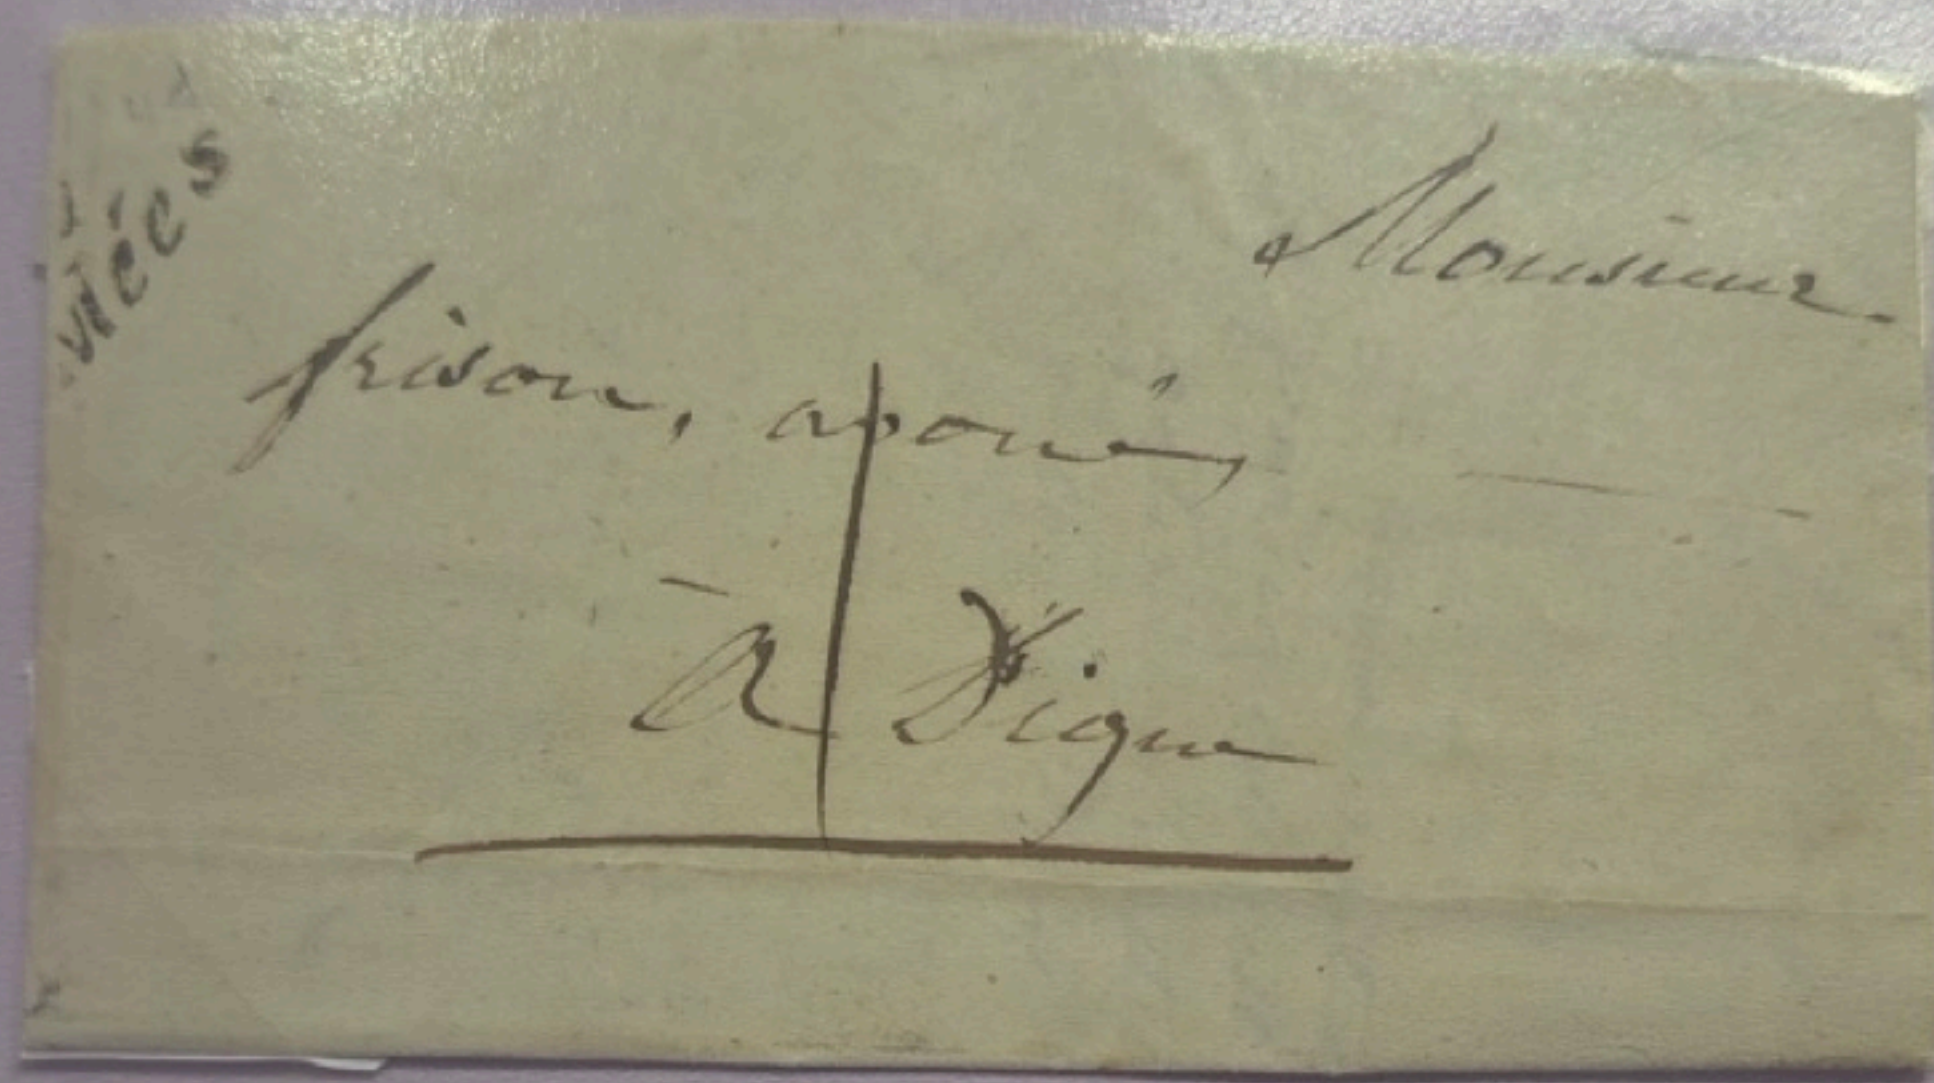 Monsieur
frison, avoué,
à Digne